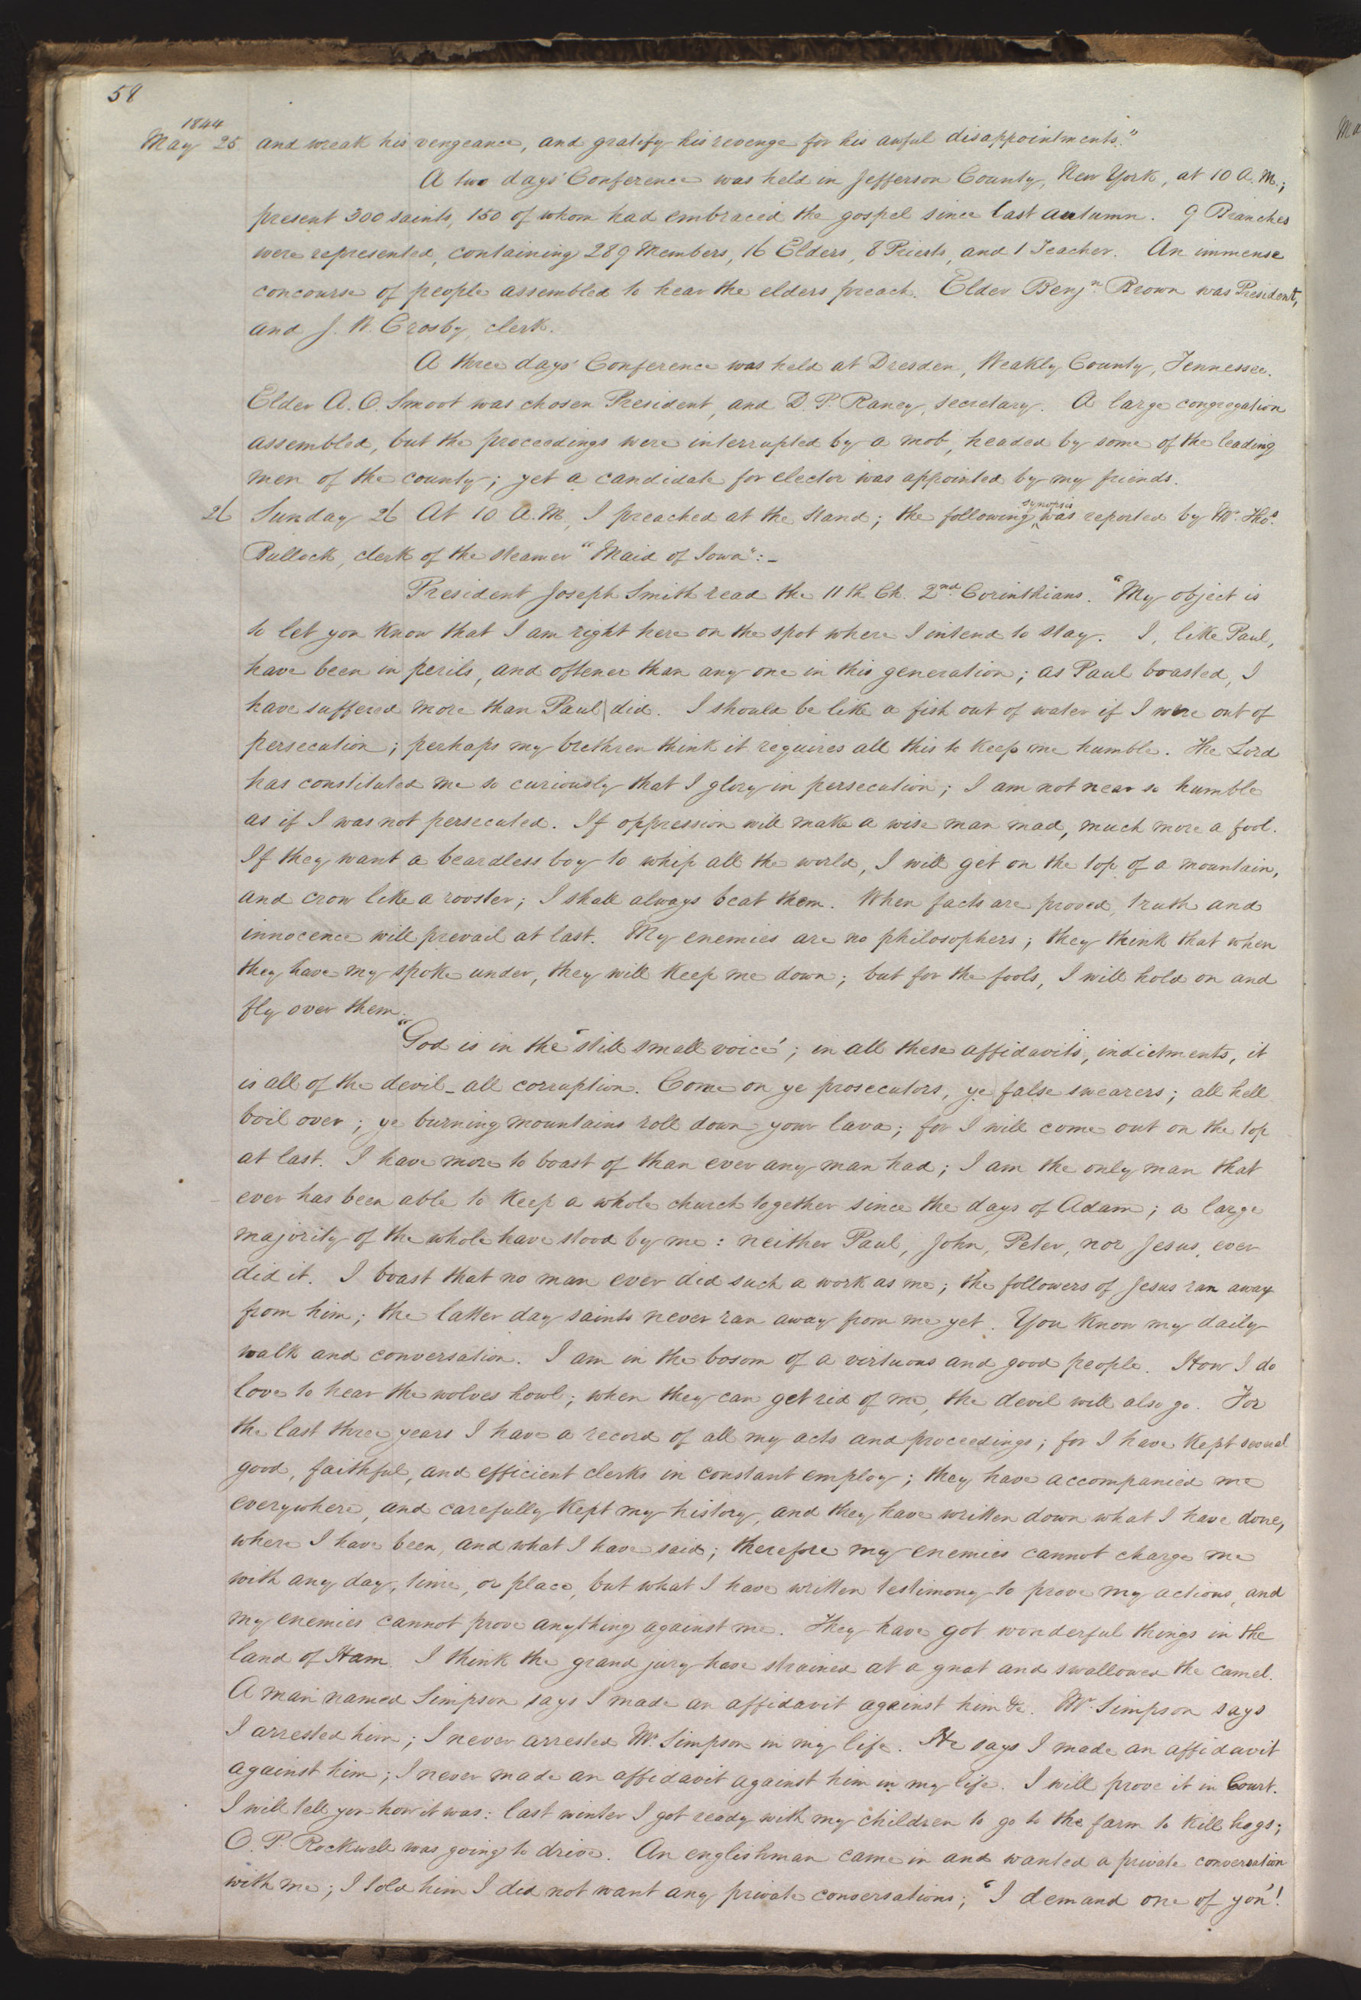 58
1844
May 25 and wreak his vengeance, and gratify his revenge for his awful disappointments."
A two days' Conference was held in Jefferson County, New York, at 10 A. M.;
present 300 saints, 150 of whom had embraced the gospel since last autumn. 9 Branches
were represented, containing 289 Members, 16 Elders, 8 Priests, and 1 Teacher. An immense
concourse of people assembled to hear the elders preach. Elder Benjn Brown was President,
and J. W. Crosby, clerk.
A three days' Conference was held at Dresden, Weakly County, Tennessee.
Elder A. O. Smoot was chosen President, and D. P. Raney, secretary. A large congregation
assembled, but the proceedings were interrupted by a mob, headed by some of the leading
men of the county; yet a candidate for elector was appointed by my friends.
26 Sunday 26 At 10 A.M. I preached at the stand; the following synopsis was reported by Mr. Thos.
Bullock, clerk of the steamer "Maid of Iowa":–
President Joseph Smith read the 11th Ch. 2nd Corinthians. "My object is
to let you know that I am right here on the spot where I intend to stay. I, like Paul,
have been in perils, and oftener than any one in this generation; as Paul boasted, I
have suffered more than Paul did. I should be like a fish out of water if I were out of
persecution; perhaps my brethren think it requires all this to keep me humble. The Lord
has constituted me so curiously that I glory in persecution; I am not near so humble
as if I was not persecuted. If oppression will make a wise man mad, much more a fool.
If they want a beardless boy to whip all the world, I will get on the top of a mountain,
and crow like a rooster; I shall always beat them. When facts are proved, truth and
innocence will prevail at last. My enemies are no philosophers; they think that when
they have my spoke under, they will keep me down; but for the fools, I will hold on and
fly over them.
"God is in the 'still small voice'; in all these affidavits, indictments, it
is all of the devil– all corruption. Come on ye prosecutors, ye false swearers; all hell
boil over; ye burning mountains roll down your lava; for I will come out on the top
at last. I have more to boast of than ever any man had; I am the only man that
ever has been able to keep a whole church together since the days of Adam; a large
majority of the whole have stood by me: neither Paul, John, Peter, nor Jesus, ever
did it. I boast that no man ever did such a work as me; the followers of Jesus ran away
from him; the latter day saints never ran away from me yet. You know my daily
walk and conversation. I am in the bosom of a virtuous and good people. How I do
love to hear the wolves howl; when they can get rid of me, the devil will also go. For
the last three years I have a record of all my acts and proceedings; for I have kept several
good, faithful, and efficient clerks in constant employ; they have accompanied me
everywhere, and carefully kept my history, and they have written down what I have done,
where I have been, and what I have said; therefore my enemies cannot charge me
with any day, time, or place, but what I have written testimony to prove my actions, and
my enemies cannot prove anything against me. They have got wonderful things in the
land of Ham. I think the grand jury have strained at a gnat and swallowed the camel.
A man named Simpson says I made an affidavit against him &c. Mr. Simpson says
I arrested him; I never arrested Mr. Simpson in my life. He says I made an affidavit
against him; I never made an affidavit against him in my life. I will prove it in Court.
I will tell you how it was: last winter I got ready with my children to go to the farm to kill hogs;
O. P. Rockwell was going to drive. An englishman came in and wanted a private conversation
with me; I told him I did not want any private conversations; "I demand one of you"!